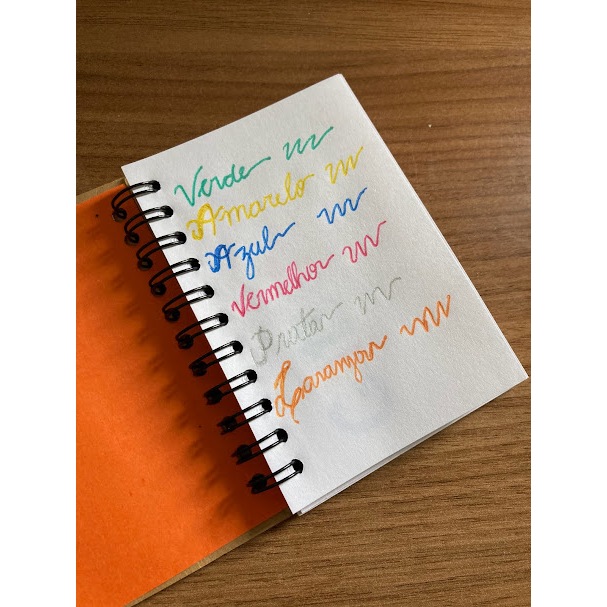 Verde
Amarelo
Azul
Vermelho
Prata
Laranja